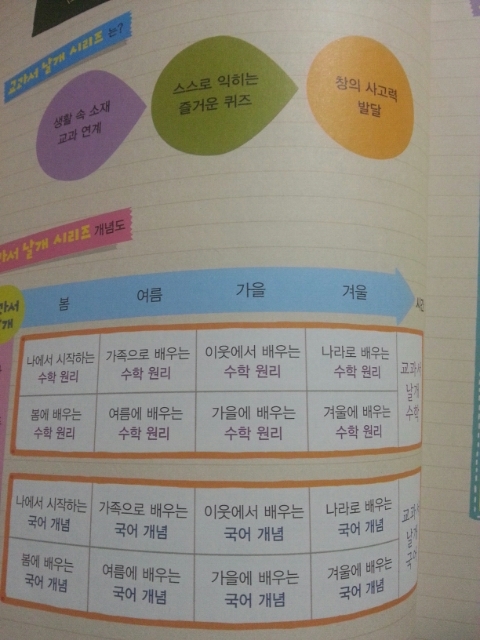 교과서 날개 시리즈 는?
생활 속 소재
교과 연계
스스로 익히는
즐거운 퀴즈
창의 사고력
발달
날개 시리즈 개념도
봄 여름 가을 겨울
나에서 시작하는 가족으로 배우는 이웃에서 배우는 나라로 배우는
수학 원리 수학 원리 수학 원리 수학 원리
봄에 배우는 여름에 배우는 가을에 배우는 겨울에 배우는
수학 원리 수학 원리 수학 원리 수학 원리
교과서
날개
수학
나에서 시작하는 가족으로 배우는 이웃에서 배우는 나라로 배우는
국어 개념 국어 개념 국어 개념 국어 개념
봄에 배우는 여름에 배우는 가을에 배우는 겨울에 배우는
국어 개념 국어 개념 국어 개념 국어 개념